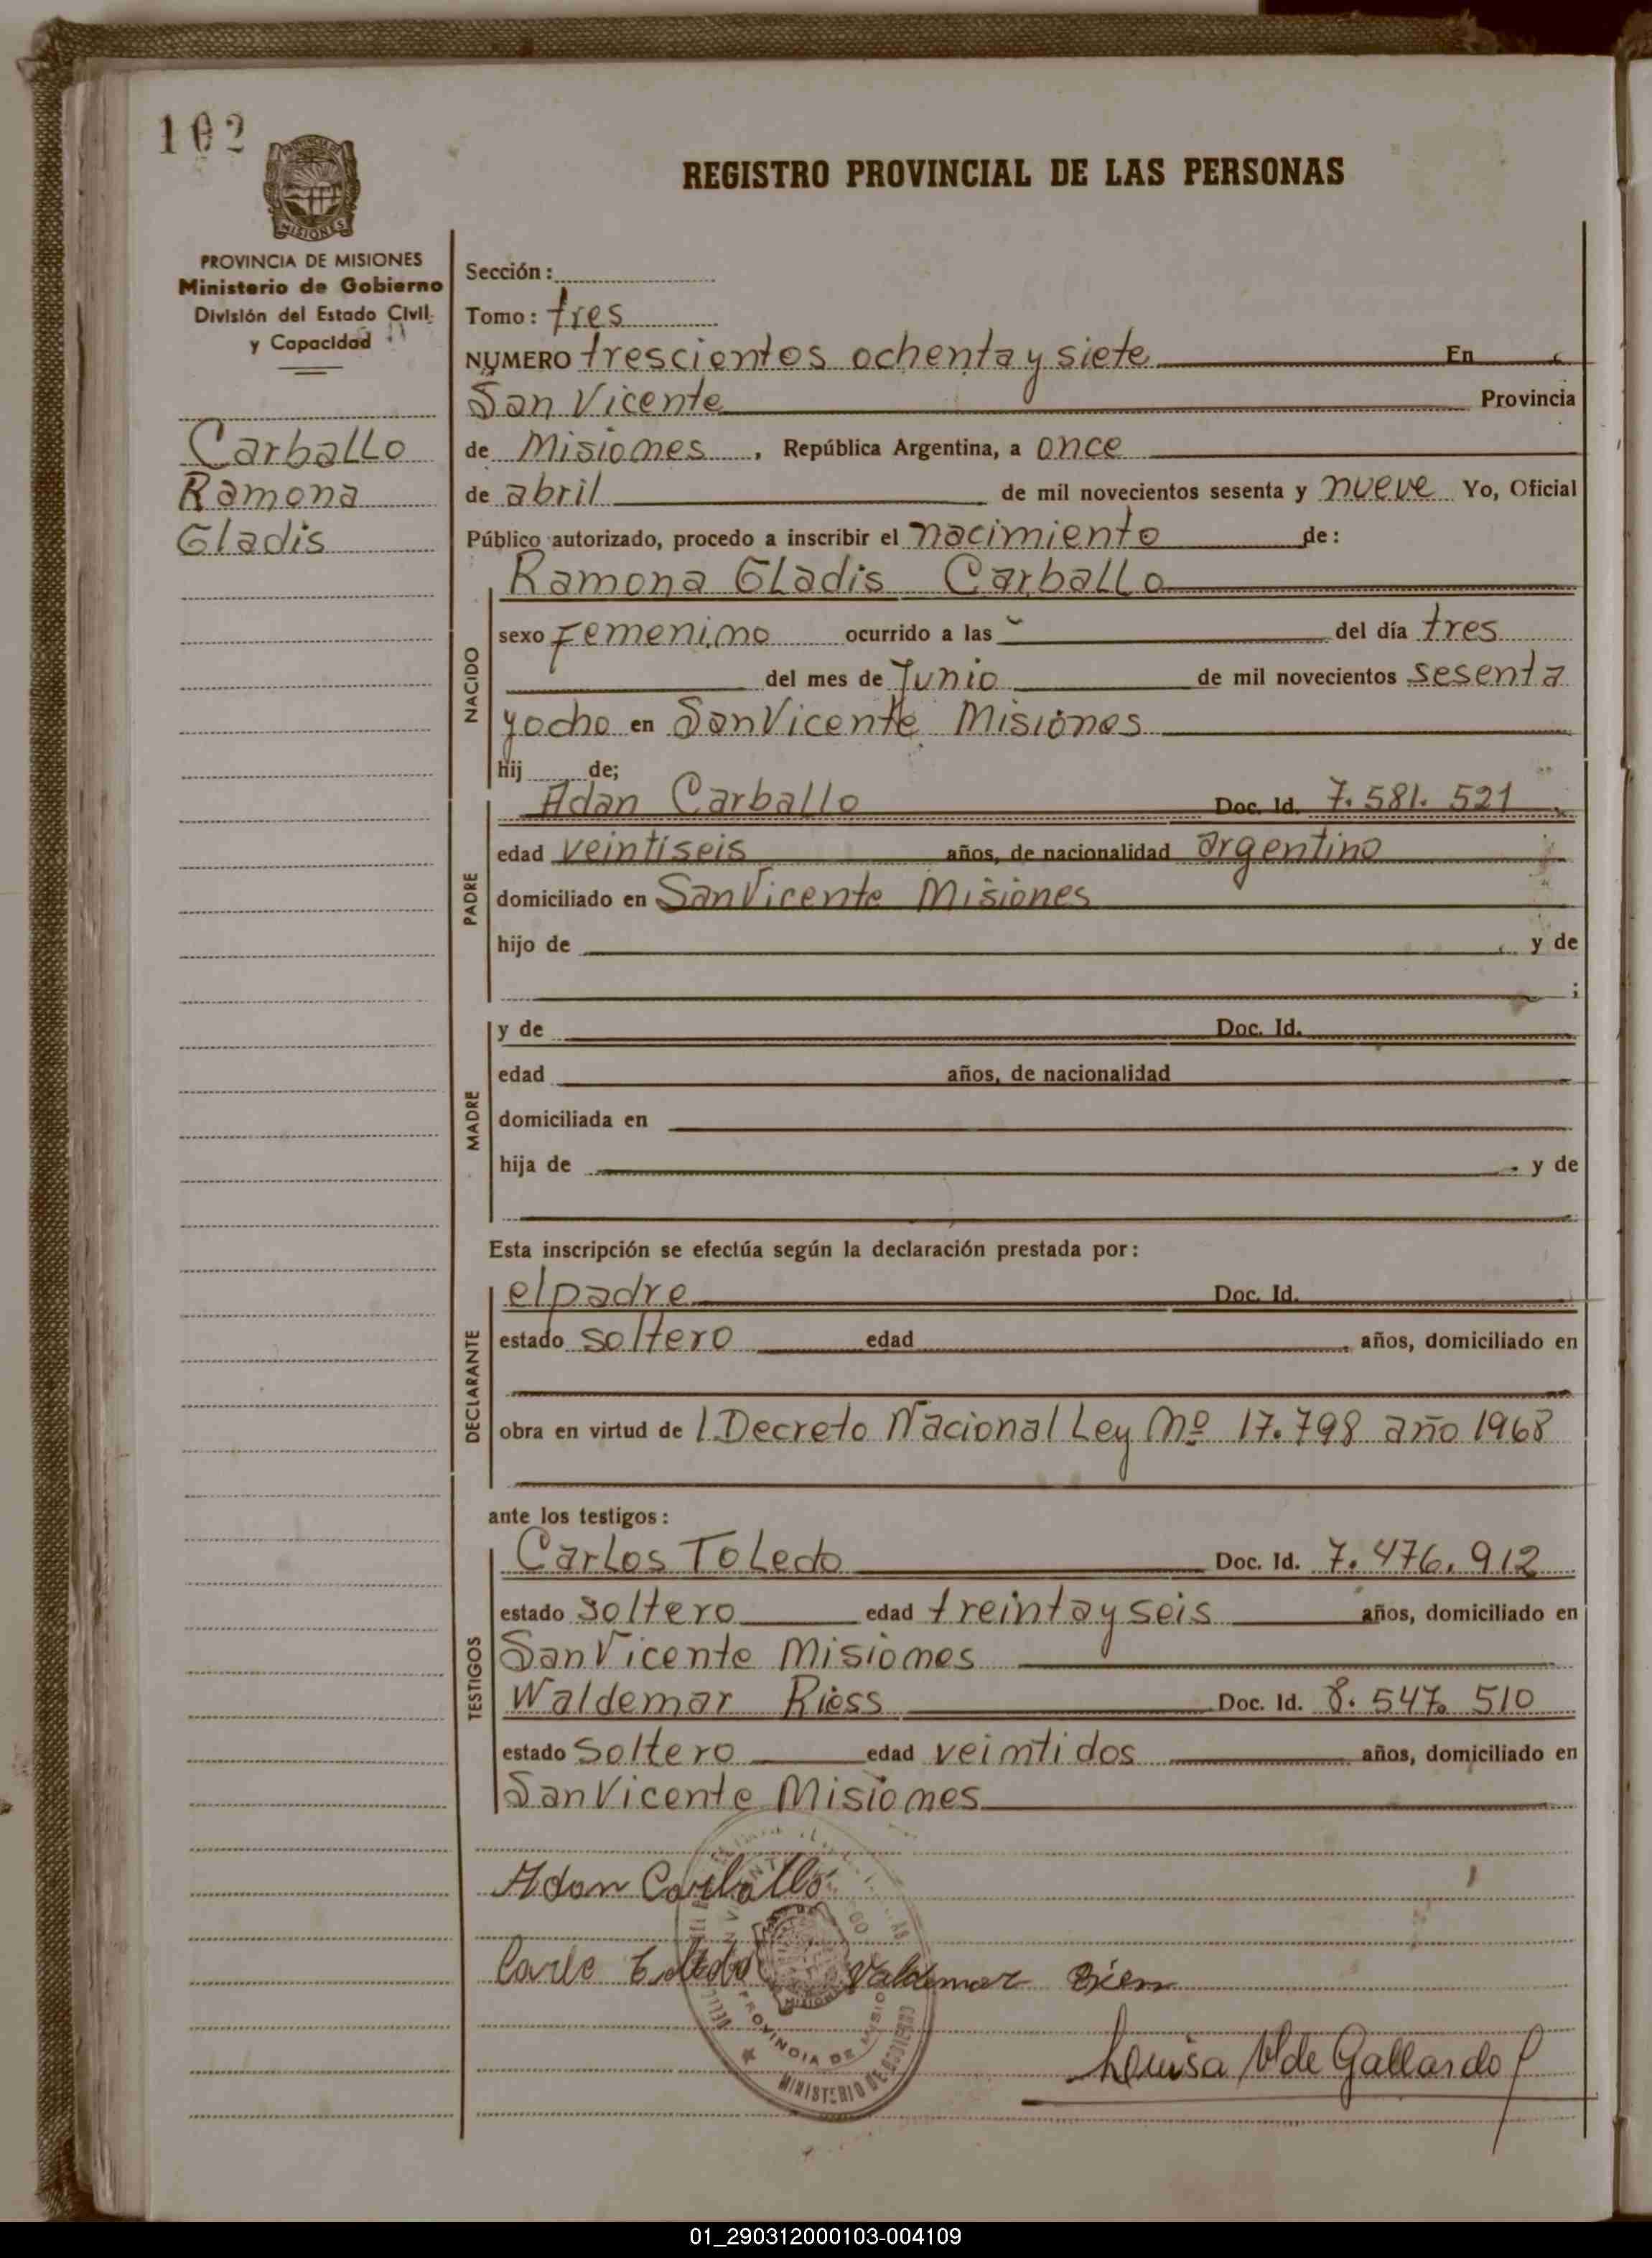 102
MISIONES
REGISTRO PROVINCIAL DE LAS PERSONAS
PROVINCIA DE MISIONES
Ministerio de Gobierno
División del Estado Civil
y Capacidad
Carballo
Ramona
Gladis
Sección:
Tomo: tres
NUMERO trescientos ochenta y siete En
San Vicente Provincia
de Misiones, República Argentina, a once
de abril de mil novecientos sesenta y nueve Yo, Oficial
Público autorizado, procedo a inscribir el nacimiento de:
Ramona Gladis Carballo
NACIDO
sexo Femenino ocurrido a las del día tres
del mes de Junio de mil novecientos sesenta
y ocho en San Vicente Misiones
hij de;
PADRE
Adan Carballo Doc. Id. 7.581.521
edad veintiseis años, de nacionalidad argentino
domiciliado en San Vicente Misiones
hijo de y de
;
MADRE
y de Doc. Id.
edad años, de nacionalidad
domiciliada en
hija de y de
Esta inscripción se efectúa según la declaración prestada por:
DECLARANTE
el padre Doc. Id.
estado soltero edad años, domiciliado en
obra en virtud de l Decreto Nacional Ley Nº 17.798 año 1968
ante los testigos:
TESTIGOS
Carlos Toledo Doc. Id. 7.476.912
estado soltero edad treinta y seis años, domiciliado en
San Vicente Misiones
Waldemar Riess Doc. Id. 8.547.510
estado Soltero edad veintidos años, domiciliado en
San Vicente Misiones
Adan Carballo
PROVINCIA DE MISIONES
MINISTERIO DE GOBIERNO
de Gallardo
01_290312000103-004109